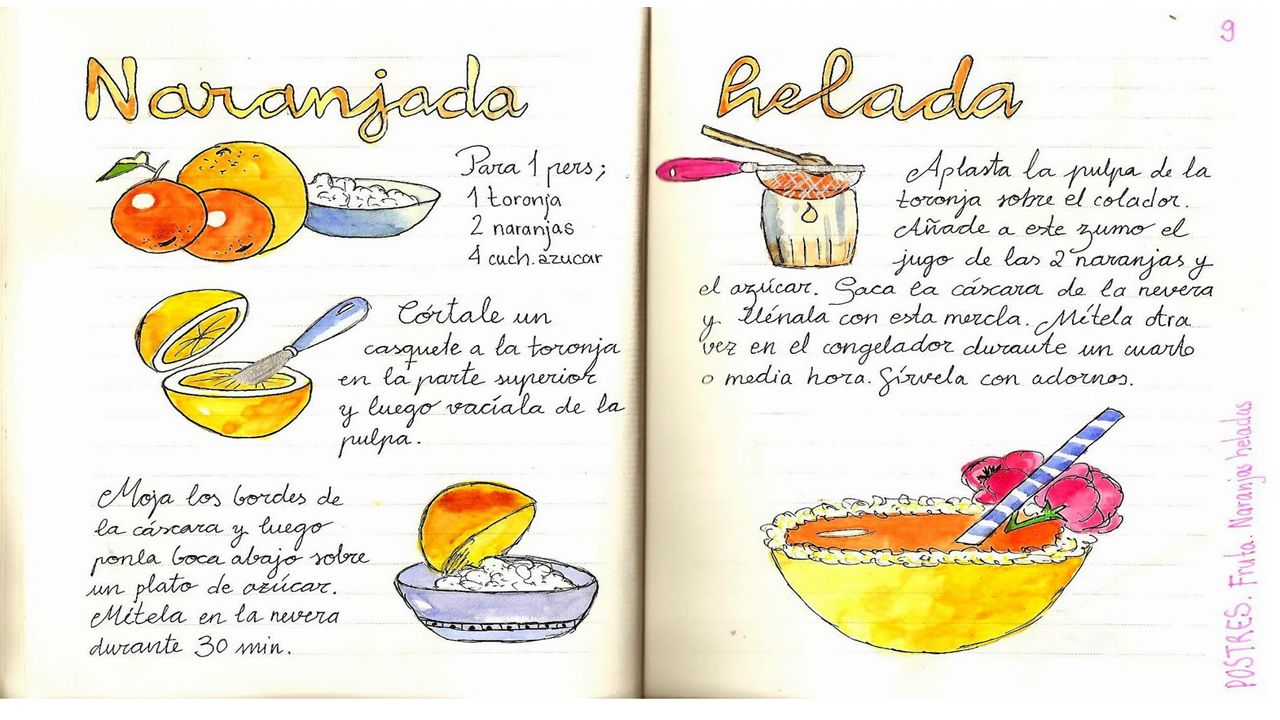 Naranjada
Para 1 pers;
1 toronja
2 naranjas
4 cuch. azucar
Córtale un
casquete a la toronja
en la parte superior
y luego vacíala de la
pulpa.
Moja los bordes de
la cáscara y luego
ponla boca abajo sobre
un plato de azúcar.
Métela en la nevera
durante 30 min.
helada
9
Aplasta la pulpa de la
toronja sobre el colador.
Añade a este zumo el
jugo de las 2 naranjas y
el azúcar. Saca la cáscara de la nevera
y llénala con esta mezcla. Métela otra
vez en el congelador durante un cuarto
o media hora. Sírvela con adornos.
POSTRES. Fruta. Naranjas heladas